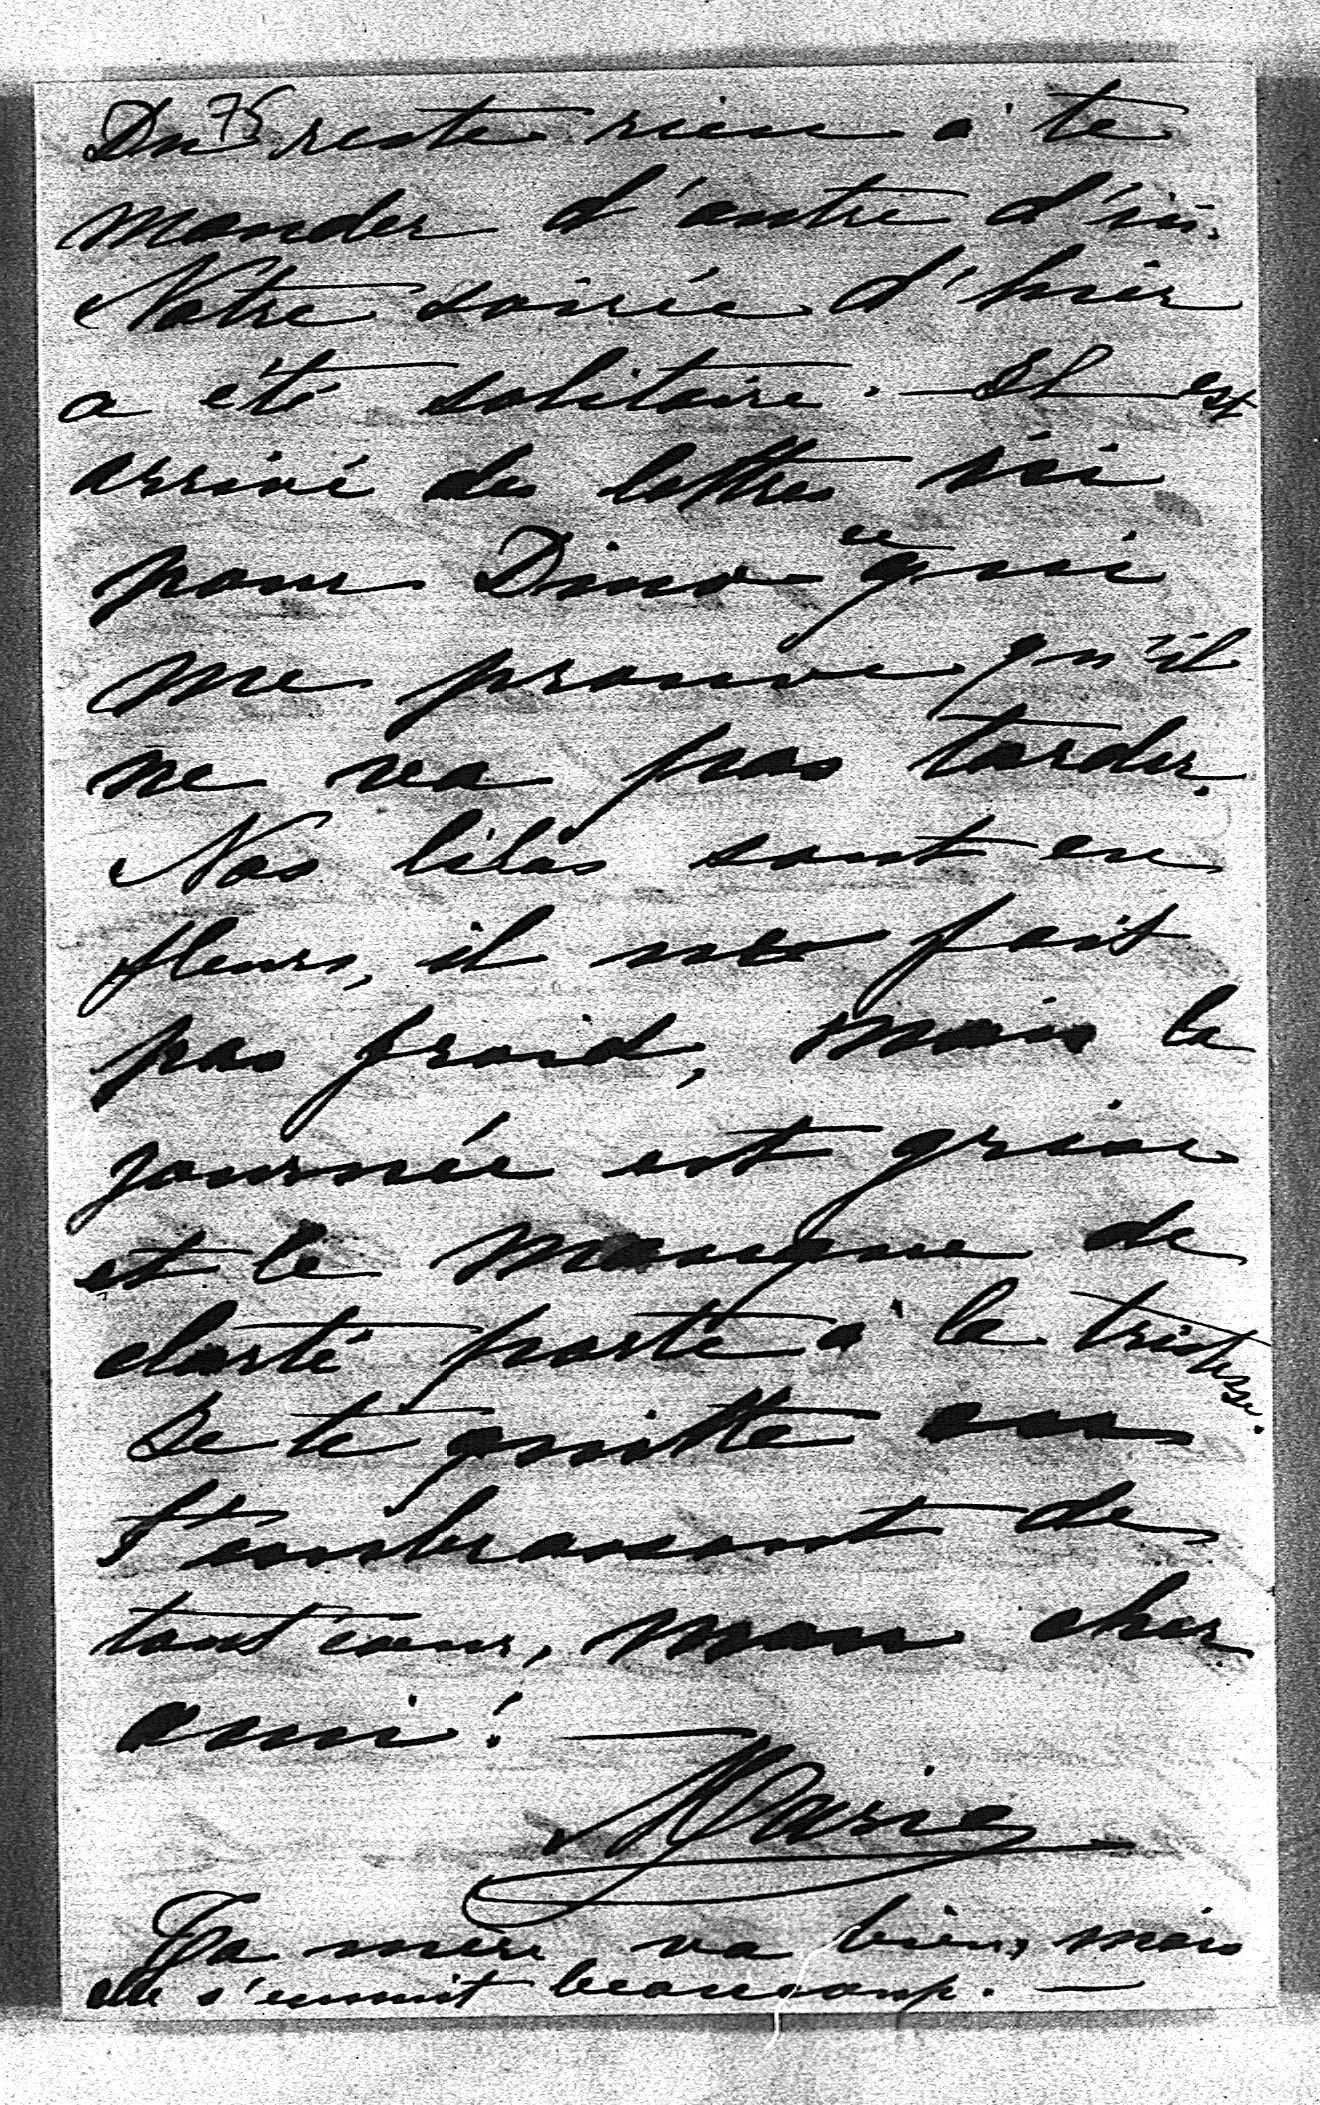 75
Du reste rien à te
mander d'autre d'ici.
Notre soirée d'hier
a été solitaire. — Il est
arrivé des lettres ici
pour Dino ce qui
me prouve qu'il
ne va pas tarder.
Nos lilas sont en
fleurs, il ne fait
pas froid, mais la
journée est grise
et le manque de
clarté porte à la tristesse.
Je te quitte en
t'embrassant de
tout cœur, mon cher
ami! —
Marie
Ta mère va bien, mais
elle s'ennuit beaucoup. —